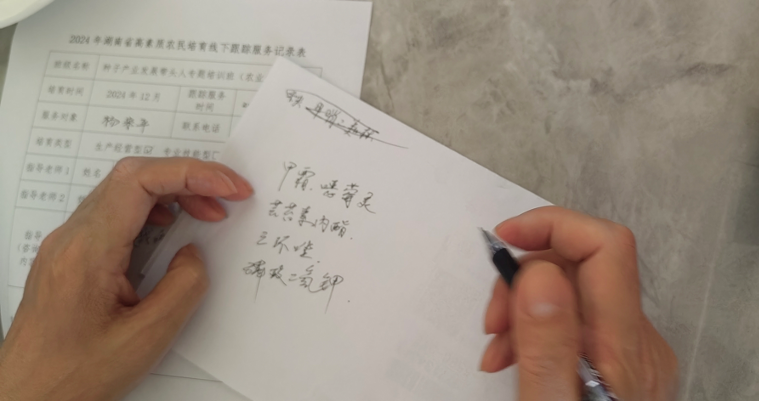 2024年湖南省高素质农民培育线下跟踪服务记录表
班级名称 种子产业发展带头人专题培训班（农业
培育时间 2024年12月 跟踪服务时间
服务对象 联系电话
培育类型 生产经营型☑ 专业技能型☐
指导老师1 姓名
指导老师2
指导
内容
甲霜·噁霉灵
芸苔素内酯.
三环唑.
磷酸二氢钾.